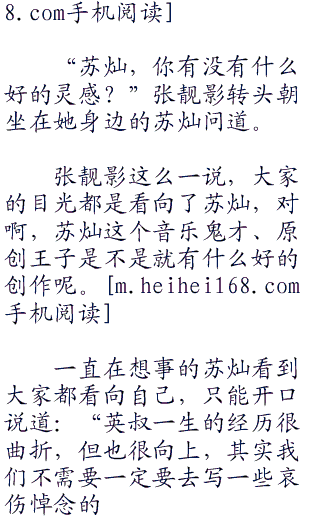 8.com手机阅读]
“苏灿，你有没有什么
好的灵感？”张靓影转头朝
坐在她身边的苏灿问道。
张靓影这么一说，大家
的目光都是看向了苏灿，对
啊，苏灿这个音乐鬼才、原
创王子是不是就有什么好的
创作呢。[m.heihei168.com
手机阅读]
一直在想事的苏灿看到
大家都看向自己，只能开口
说道：“英叔一生的经历很
曲折，但也很向上，其实我
们不需要一定要去写一些哀
伤悼念的